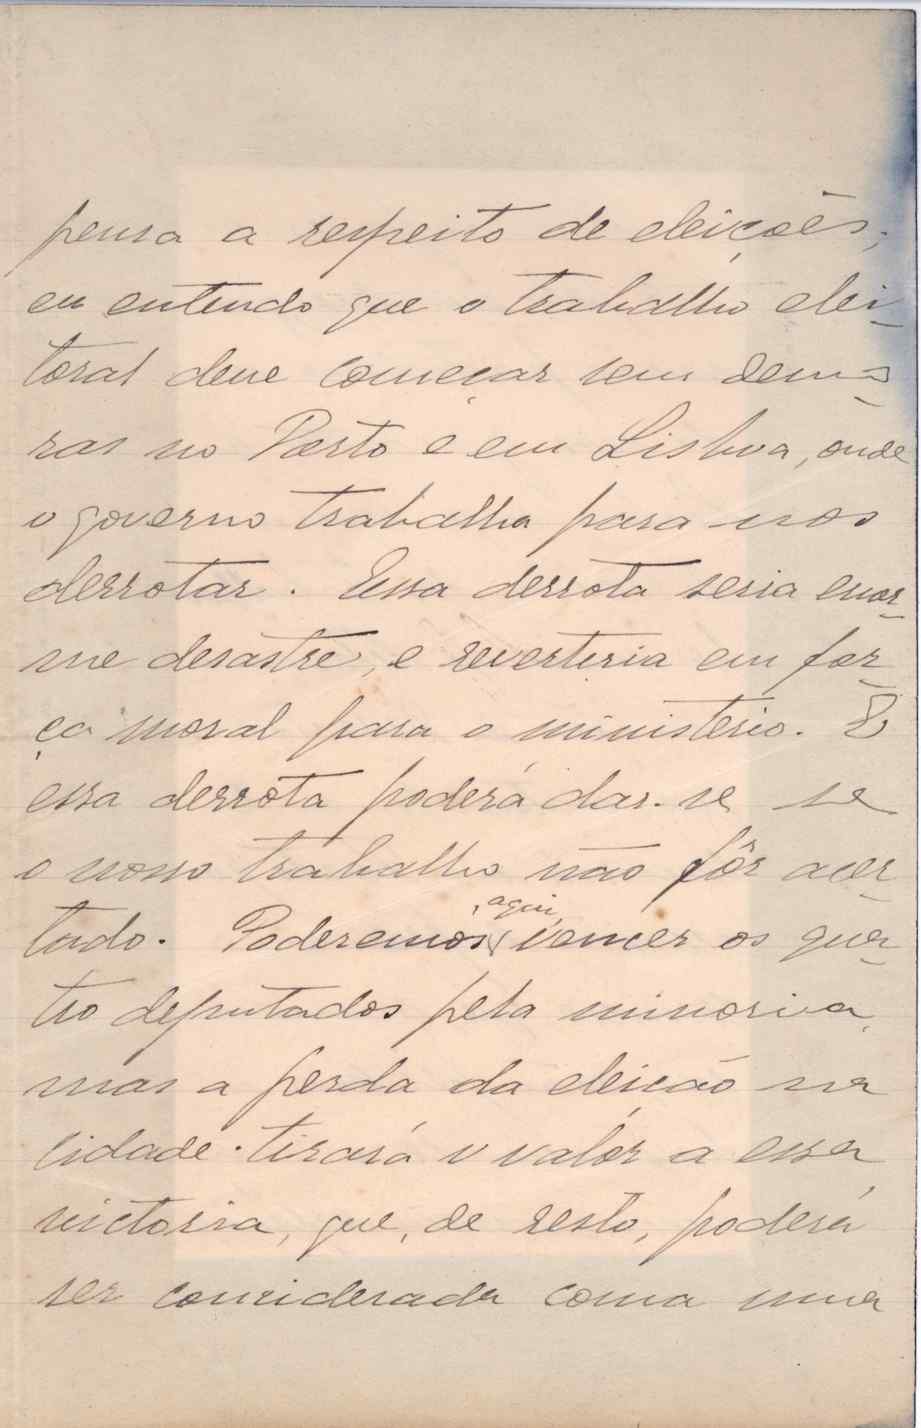 pensa a respeito de eleições;
eu entendo que o trabalho elei-
toral deve começar sem demo-
ras no Porto e em Lisboa, onde
o governo trabalha para nos
derrotar. Essa derrota seria enor-
me desastre, e reverteria em for-
ça moral para o ministerio. E
essa derrota poderá dar-se, se
o nosso trabalho não fôr acer-
tado. Poderemos aqui vencer os qua-
tro deputados pela minoria,
mas a perda da eleição na
cidade tirará o valôr a essa
victoria, que, de resto, poderá
ser considerada como uma